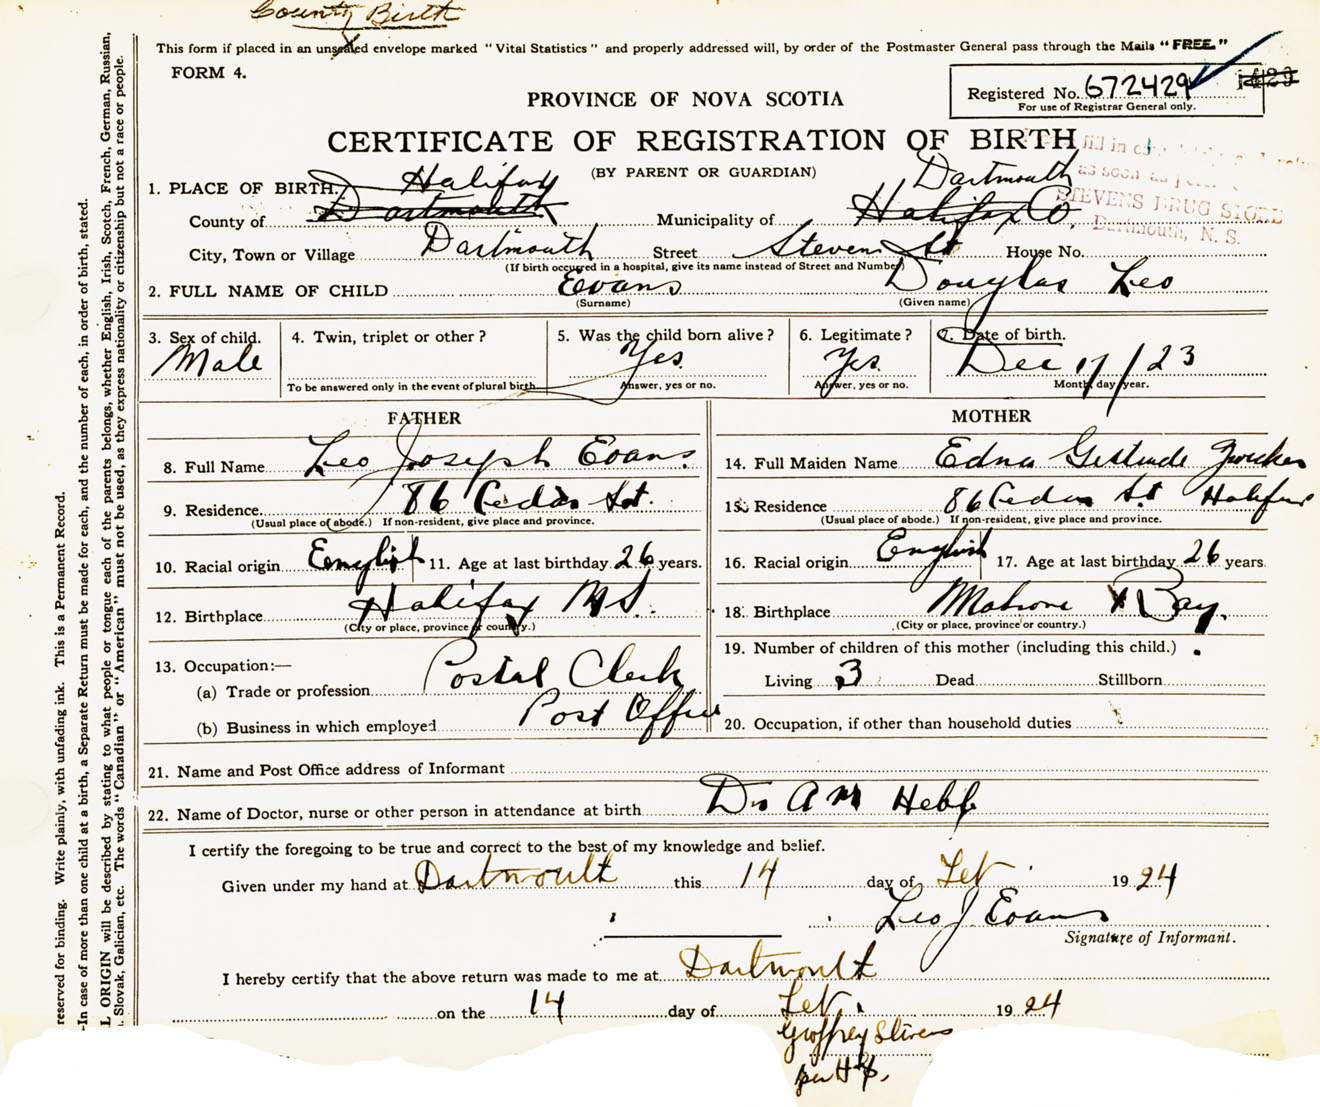 County Birth
This form if placed in an unsealed envelope marked "Vital Statistics" and properly addressed will, by order of the Postmaster General pass through the Mails "FREE."
FORM 4.
Registered No. 672429
For use of Registrar General only.
PROVINCE OF NOVA SCOTIA
CERTIFICATE OF REGISTRATION OF BIRTH
(BY PARENT OR GUARDIAN)
fill in
as soon as
STEVENS DRUG STORE
Dartmouth, N. S.
1. PLACE OF BIRTH. Halifax Dartmouth
County of Dartmouth Municipality of Halifax Co.
City, Town or Village Dartmouth Street Stevens St House No.
(If birth occurred in a hospital, give its name instead of Street and Number)
2. FULL NAME OF CHILD Evans Douglas Leo
(Surname) (Given name)
3. Sex of child. 4. Twin, triplet or other? 5. Was the child born alive? 6. Legitimate? 7. Date of birth.
Male Yes. Yes. Dec 17/23
To be answered only in the event of plural birth Answer, yes or no. Answer, yes or no. Month, day, year.
FATHER MOTHER
8. Full Name Leo Joseph Evans 14. Full Maiden Name Edna Gertrude Zwicker
9. Residence 86 Cedar St. 15. Residence 86 Cedar St Halifax
(Usual place of abode.) If non-resident, give place and province. (Usual place of abode.) If non-resident, give place and province.
10. Racial origin English 11. Age at last birthday 26 years. 16. Racial origin English 17. Age at last birthday 26 years.
12. Birthplace Halifax N.S. 18. Birthplace Mahone Bay.
(City or place, province or country.) (City or place, province or country.)
13. Occupation:— 19. Number of children of this mother (including this child.)
(a) Trade or profession Postal Clerk Living 3 Dead Stillborn
(b) Business in which employed Post Office 20. Occupation, if other than household duties
21. Name and Post Office address of Informant
22. Name of Doctor, nurse or other person in attendance at birth Dr A M Hebb
I certify the foregoing to be true and correct to the best of my knowledge and belief.
Given under my hand at Dartmouth this 14 day of Feb. 1924
Leo J Evans
Signature of Informant.
I hereby certify that the above return was made to me at Dartmouth
on the 14 day of Feb. 1924
Geoffrey Stevens
per
reserved for binding. Write plainly, with unfading ink. This is a Permanent Record.
-In case of more than one child at a birth, a Separate Return must be made for each, and the number of each, in order of birth, stated.
L ORIGIN will be described by stating to what people or tongue each of the parents belongs, whether English, Irish, Scotch, French, German, Russian,
Slovak, Galician, etc. The words "Canadian" or "American" must not be used, as they express nationality or citizenship but not a race or people.